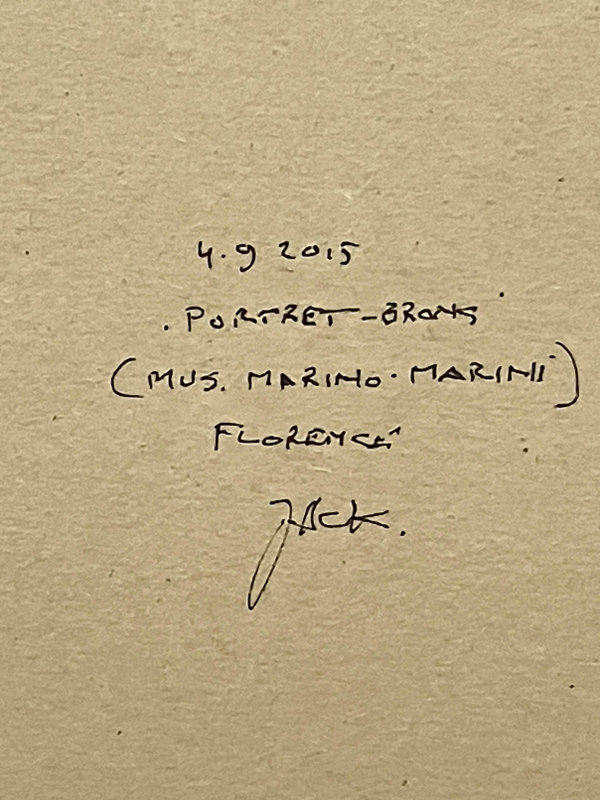 4.9 2015
. PORTRET-BRONS
(MUS. MARINO. MARINI)
FLORENCE
JACK.